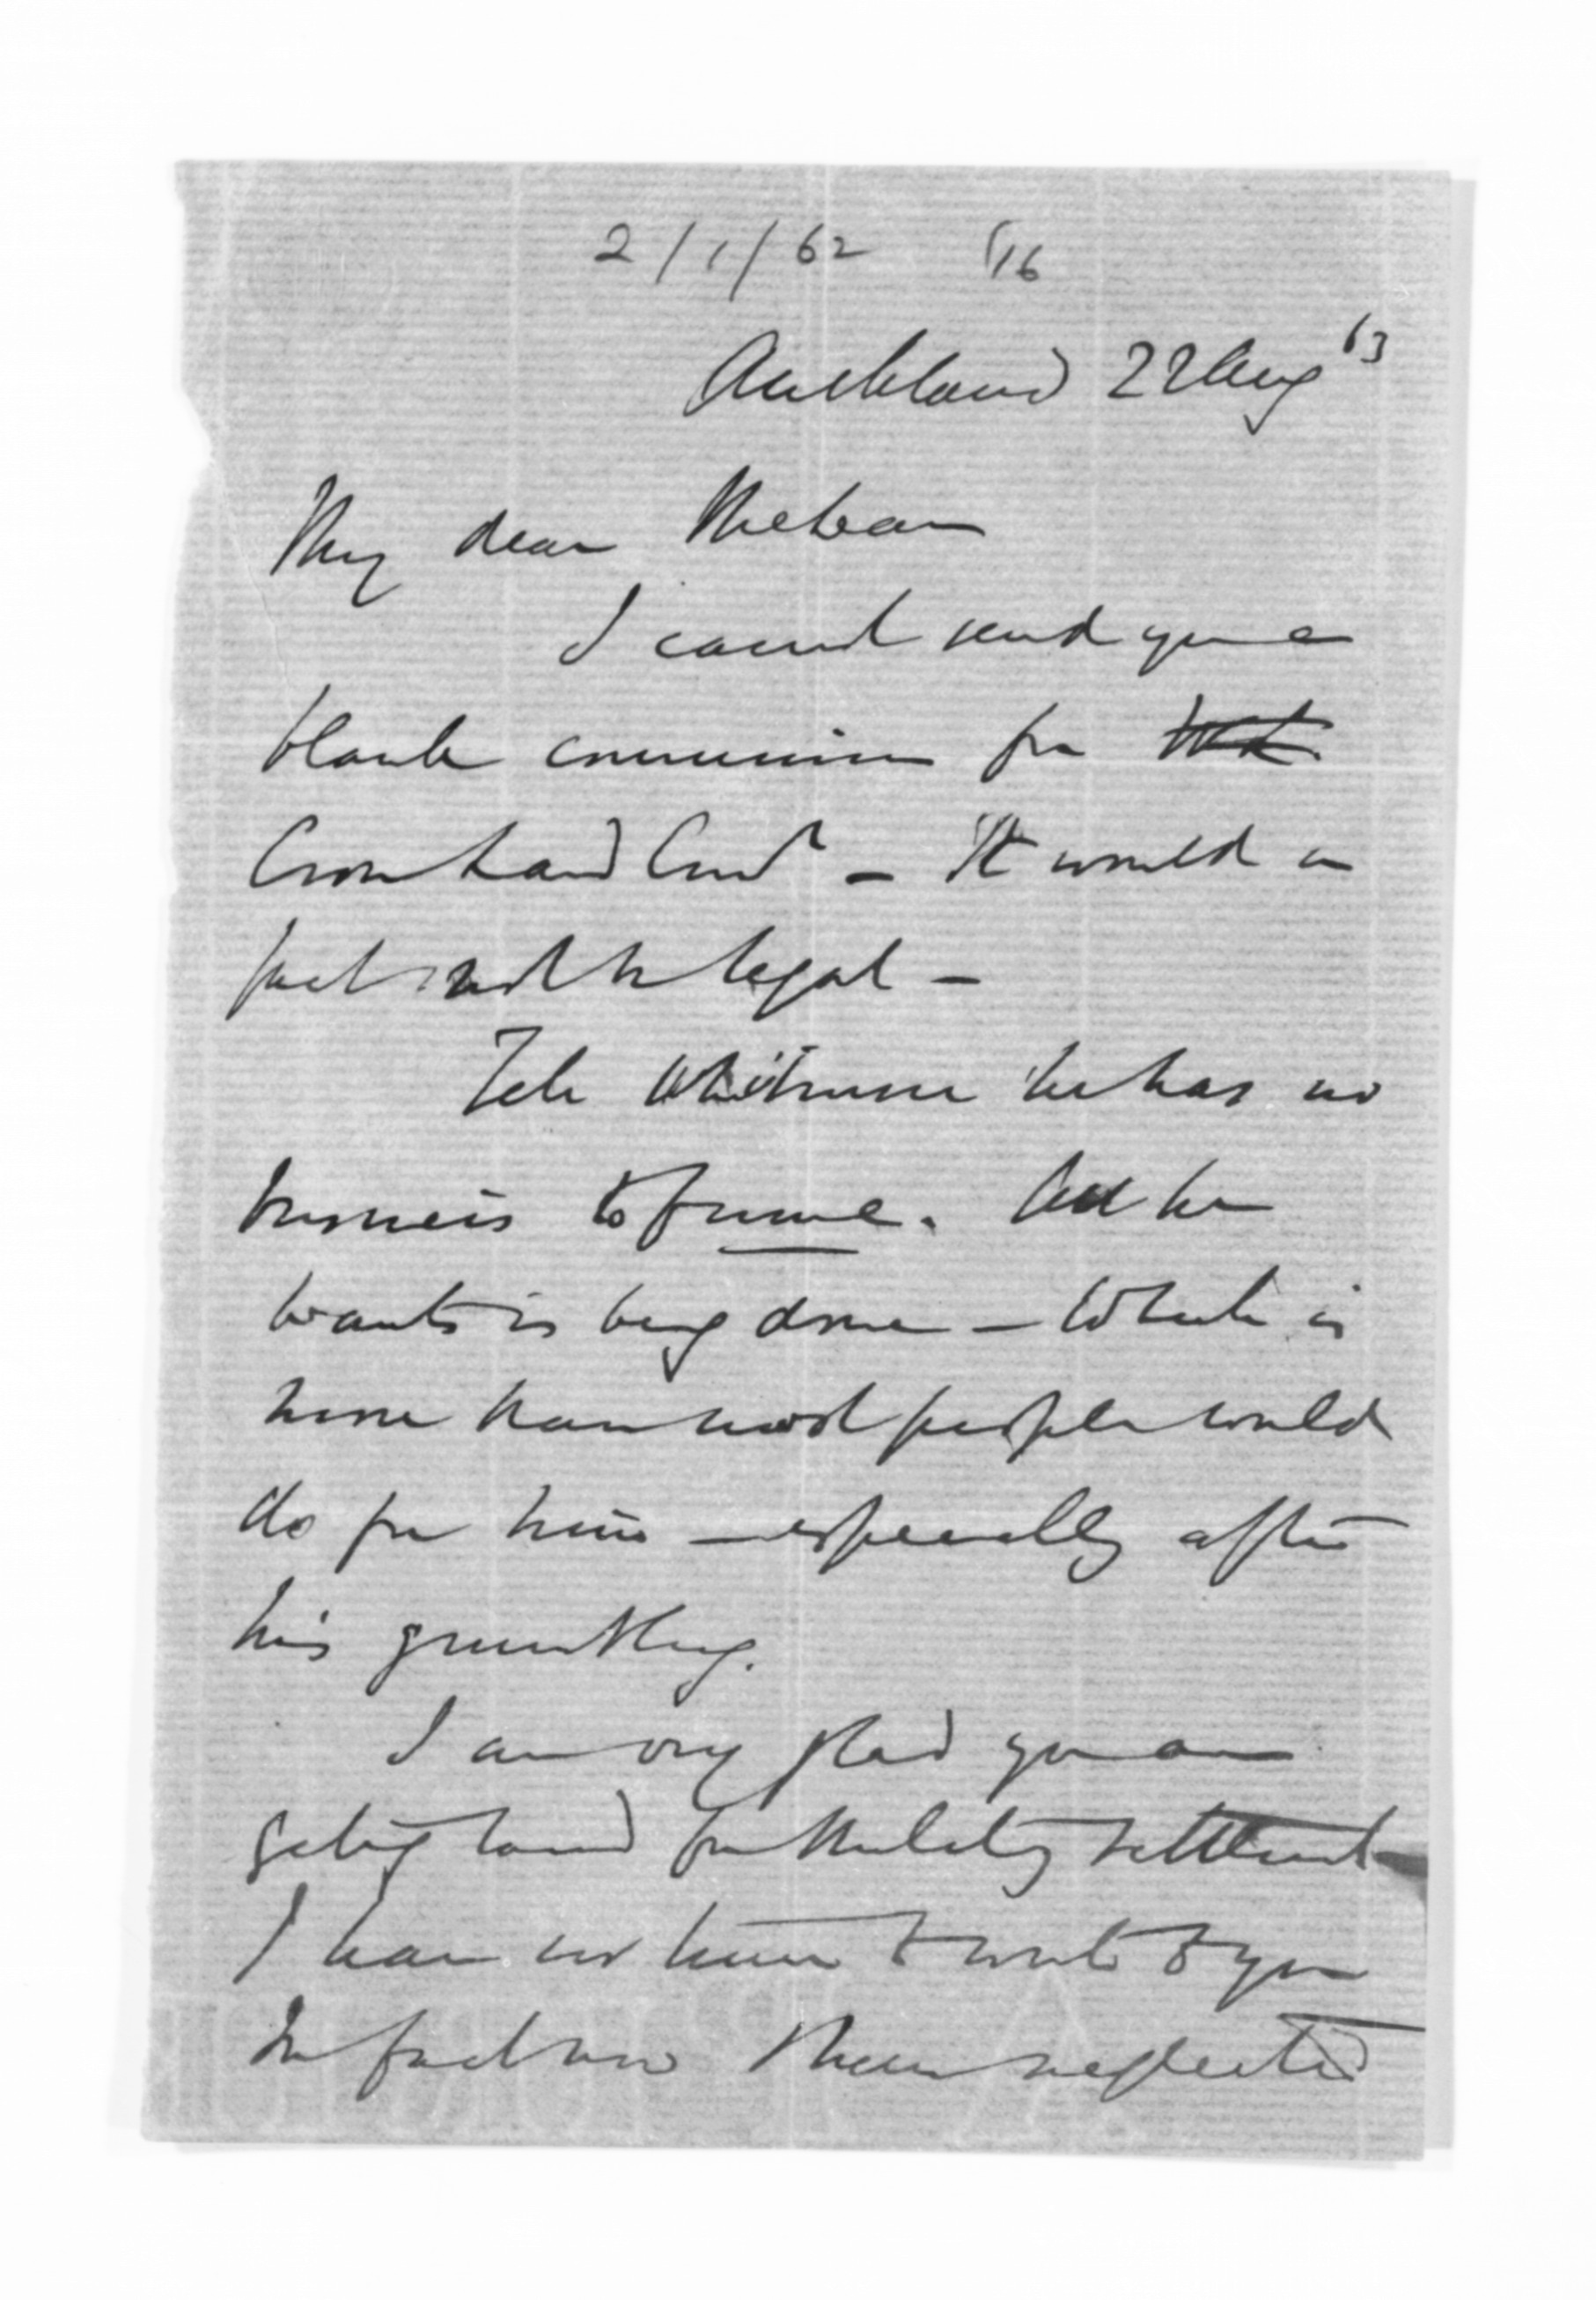 2/1/62 116
Auckland 22 Aug 63
My dear McLean
I cannot send you a
blank commission for
Crown Land Comr — It would in
fact not be legal —
Tell Whitmore he has no
business to fume. All he
wants is being done — Which is
more than most people would
do for him — especially after
his grumbling.
I am very glad you are
getting land for Military settlement
I have no time to write to you
In fact now I have neglected